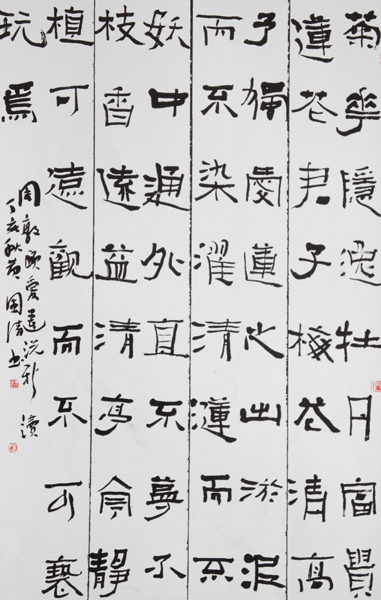 菊華隱逸牡丹富貴
蓮花君子梅花清高
予獨愛蓮之出淤泥
而不染濯清漣而不
妖中通外直不蔓不
枝香遠益清亭亭靜
植可遠觀而不可褻
玩焉
周敦頤愛蓮說新讀
丁亥秋國清書